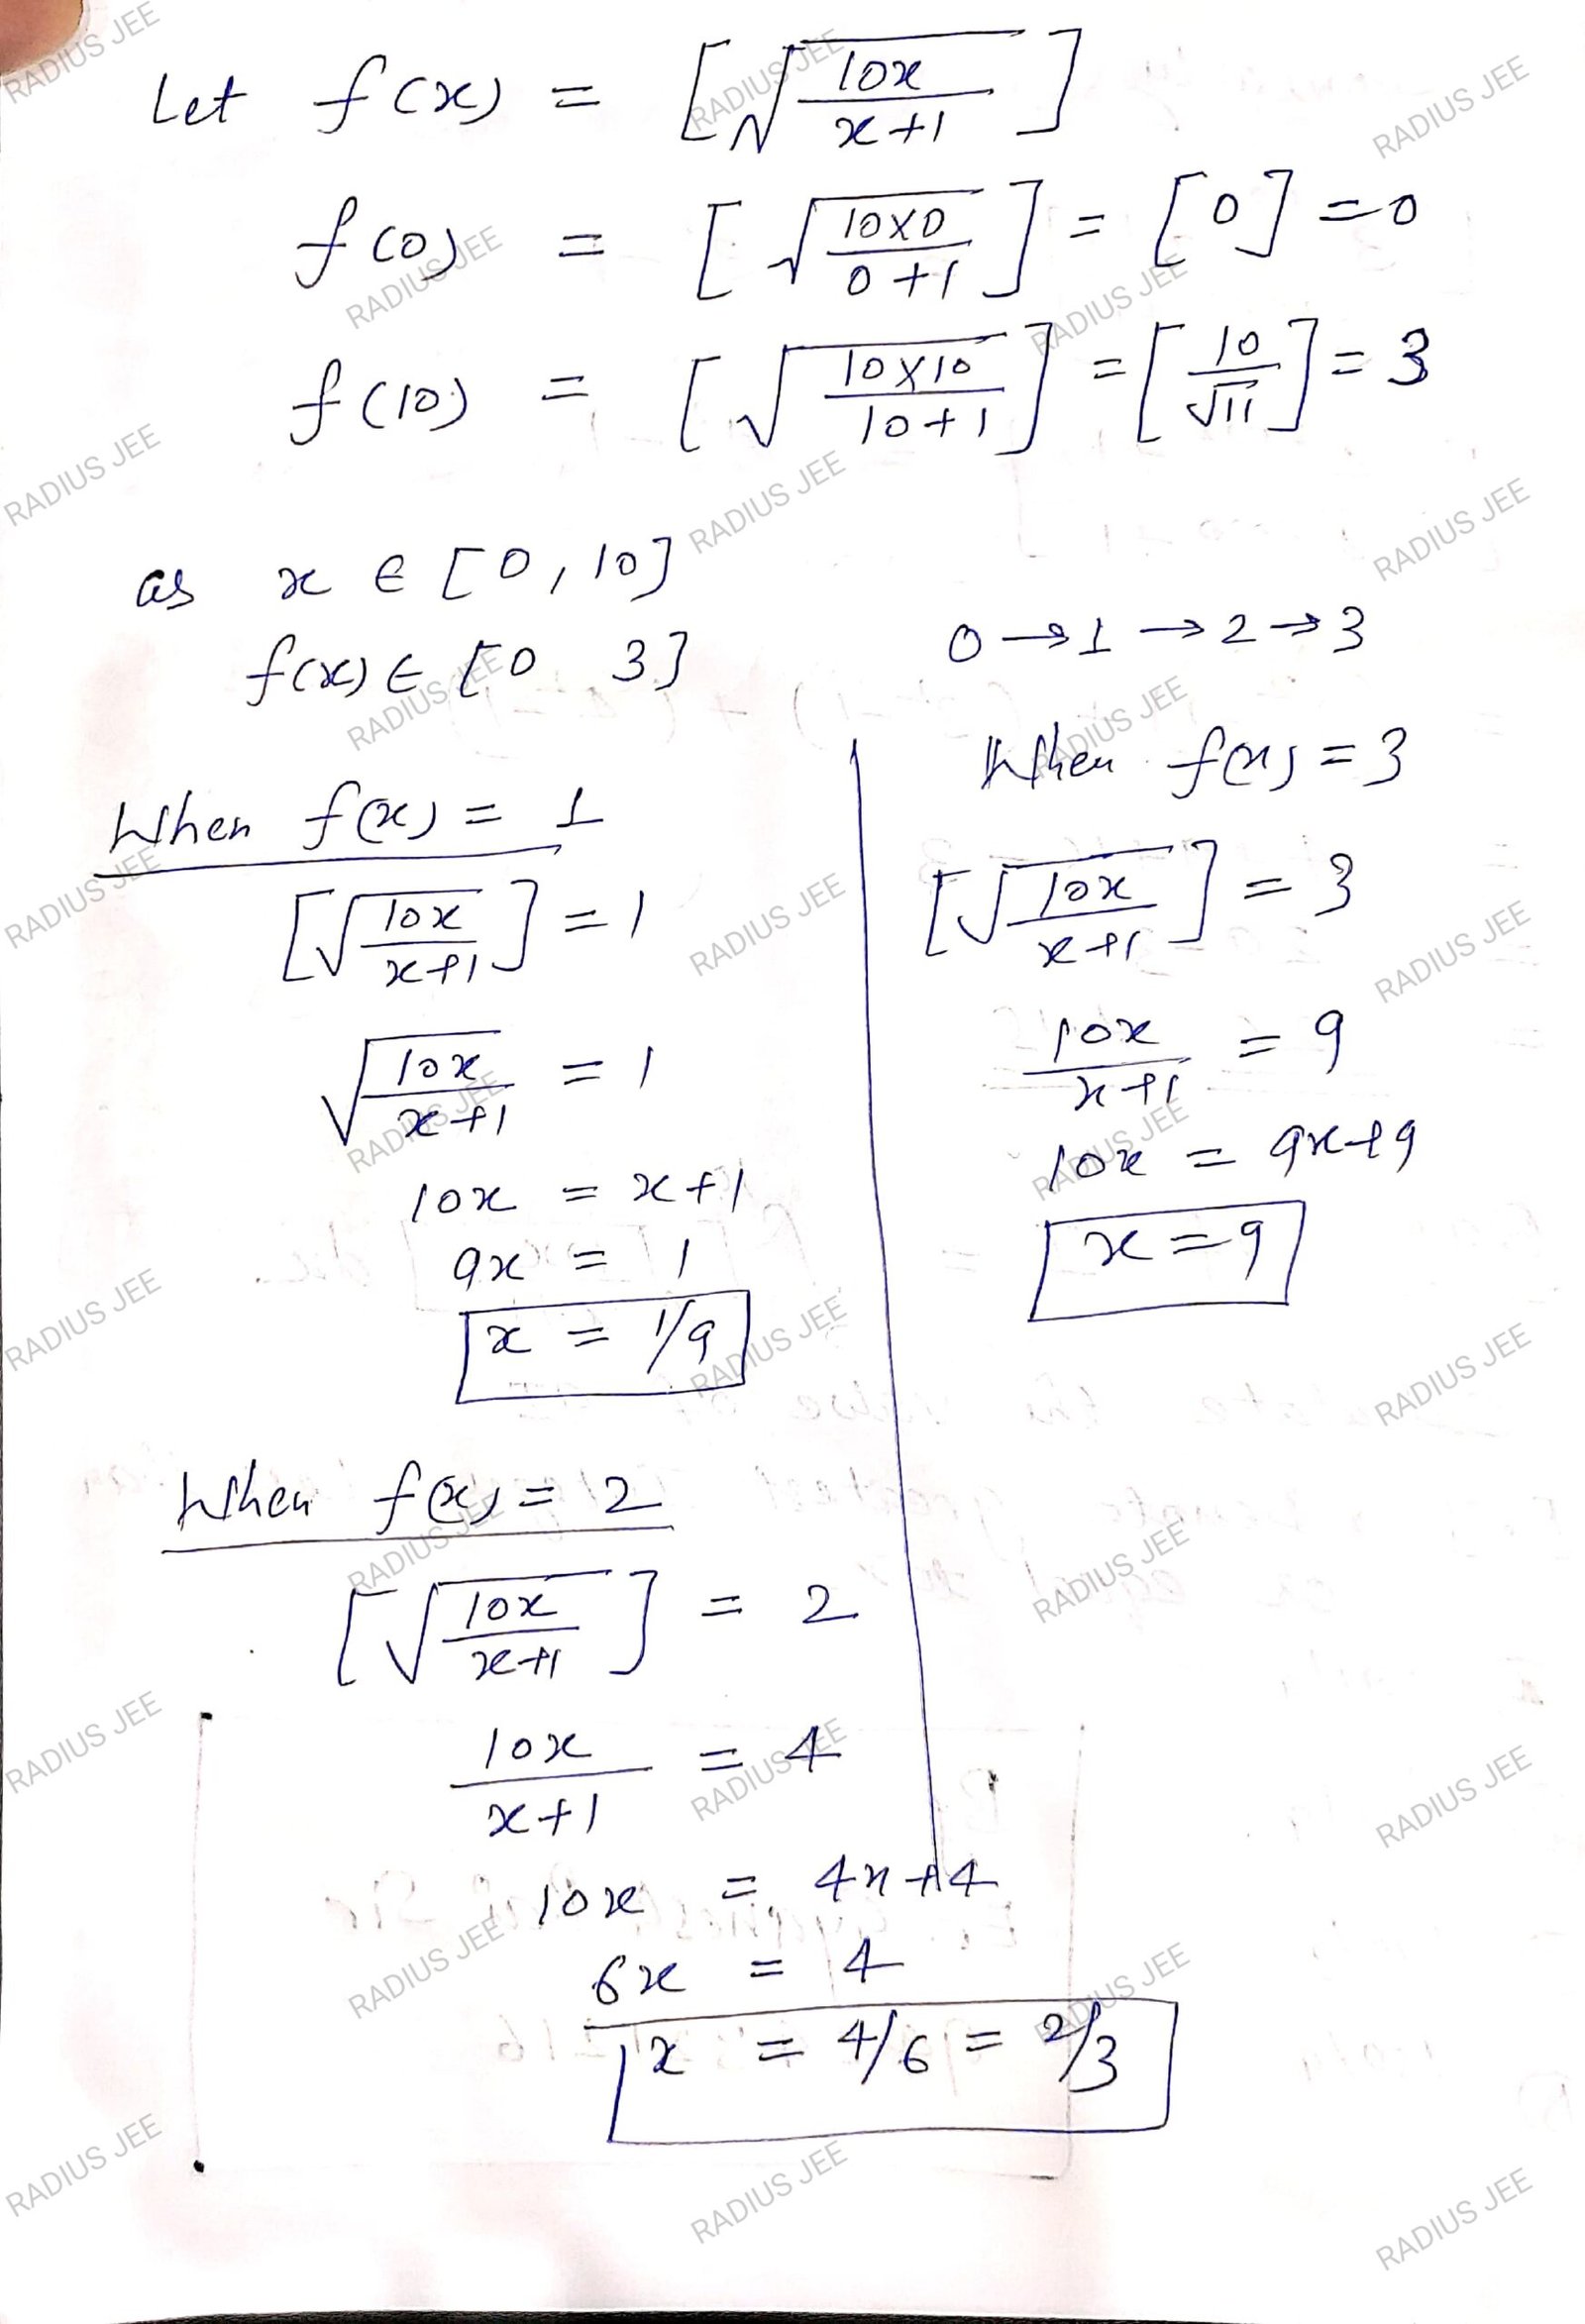 Let f(x) = [√(10x/(x+1))]
f(0) = [√((10×0)/(0+1))] = [0] = 0
f(10) = [√((10×10)/(10+1))] = [10/√11] = 3
as x ∈ [0, 10]
f(x) ∈ [0 3]
0 → 1 → 2 → 3
When f(x) = 1
[√(10x/(x+1))] = 1
√(10x/(x+1)) = 1
10x = x+1
9x = 1
x = 1/9
When f(x) = 2
[√(10x/(x+1))] = 2
10x/(x+1) = 4
10x = 4x+4
6x = 4
x = 4/6 = 2/3
When f(x) = 3
[√(10x/(x+1))] = 3
10x/(x+1) = 9
10x = 9x+9
x = 9
RADIUS JEE